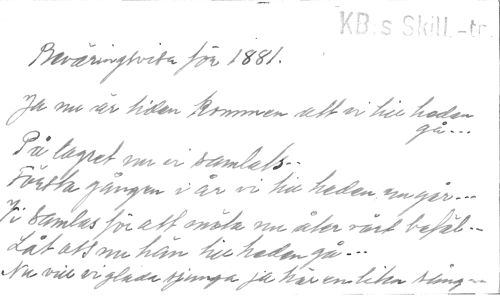 KB:s Skill.-tr.
Beväringsvisa för 1881.
Ja nu är tiden kommen att vi till heden
gå...
På lagret nu vi samlats...
Första gången i år vi till heden nu går...
Vi samlas för att möta nu åter vårt befäl...
Låt oss nu hän till heden gå...
Nu vill vi glada sjunga ja här en liten sång...